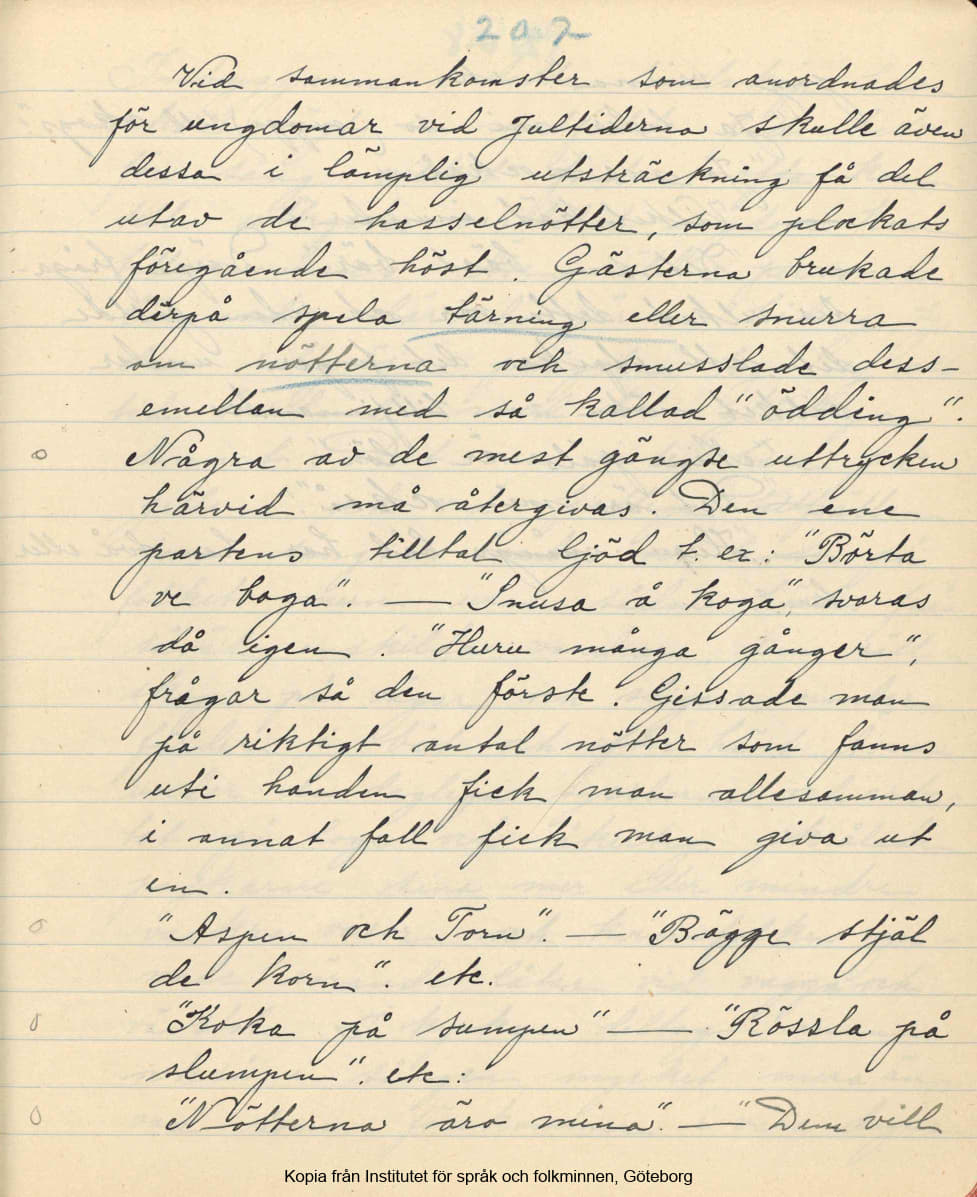 207
Vid sammankomster som anordnades
för ungdomar vid Jultiderna skulle även
dessa i lämplig utsträckning få del
utav de hasselnötter, som plockats
föregående höst. Gästerna brukade
därpå spela tärning eller snurra
om nötterna och smusslade dess-
emellan med så kallad "ödding".
Några av de mest gängse uttrycken
härvid må återgivas. Den ene
partens tilltal ljöd t. ex: "Börta
ve baga". — "Snusa å koga", svaras
då igen. "Huru många gånger",
frågar så den förste. Gissade man
på riktigt antal nötter som fanns
uti handen fick man allesamman,
i annat fall fick man giva ut
en.
"Aspen och Torn". — "Bägge stjäl
de korn". etc.
"Koka på sumpen" — "Rössla på
slumpen". etc:
"Nötterna äro mina". — "Dem vill
Kopia från Institutet för språk och folkminnen, Göteborg